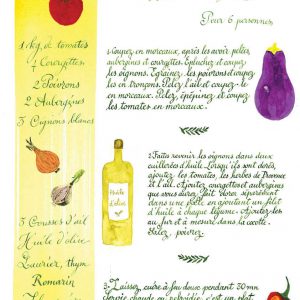 Pour 6 personnes
1 kg de tomates
4 Courgettes
2 Poivrons
2 Aubergines
3 Oignons blancs
3 Gousses d'ail
Huile d'olive
Laurier, thym
Romarin
1. Coupez en morceaux, après les avoir pelées,
aubergines et courgettes. Epluchez et coupez
les oignons. Egrainez les poivrons et coupez
les en tronçons. Pelez l'ail et coupez-le
en morceaux. Pelez, épépinez et coupez
les tomates en morceaux.
Huile
d'olive
2. Faites revenir les oignons dans deux
cuillerées d'huile. Lorsqu'ils sont dorés,
ajoutez les tomates, les herbes de Provence
et l'ail. Ajoutez courgettes et aubergines
que vous aurez fait dorer séparément
dans une poêle, en ajoutant un filet
d'huile à chaque légume. Ajoutez-les
au fur et à mesure dans la cocotte.
Salez, poivrez.
3. Laissez cuire à feu doux pendant 30 mn